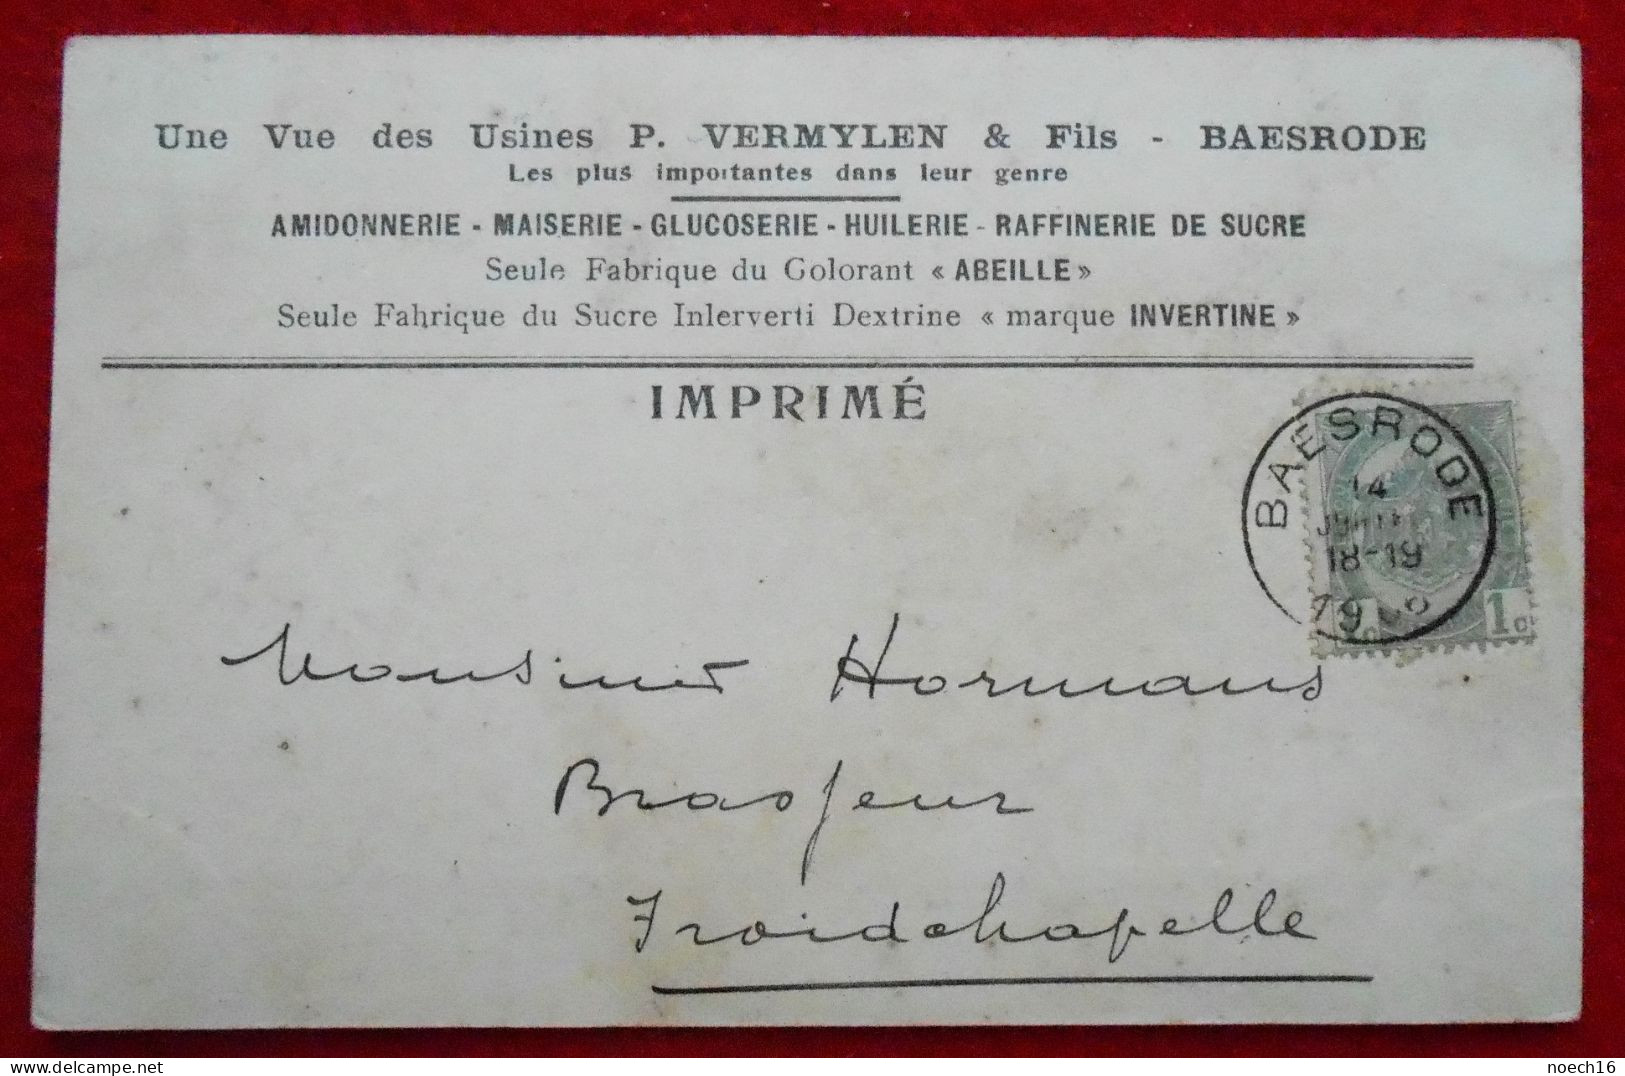 Une Vue des Usines P. VERMYLEN & Fils - BAESRODE
Les plus importantes dans leur genre
AMIDONNERIE - MAISERIE - GLUCOSERIE - HUILERIE - RAFFINERIE DE SUCRE
Seule Fabrique du Golorant « ABEILLE »
Seule Fahrique du Sucre Inlerverti Dextrine « marque INVERTINE »
IMPRIMÉ
BAESRODE
14
18-19
1c
Monsieur Hormans
Brasseur
Froidchapelle
noech16